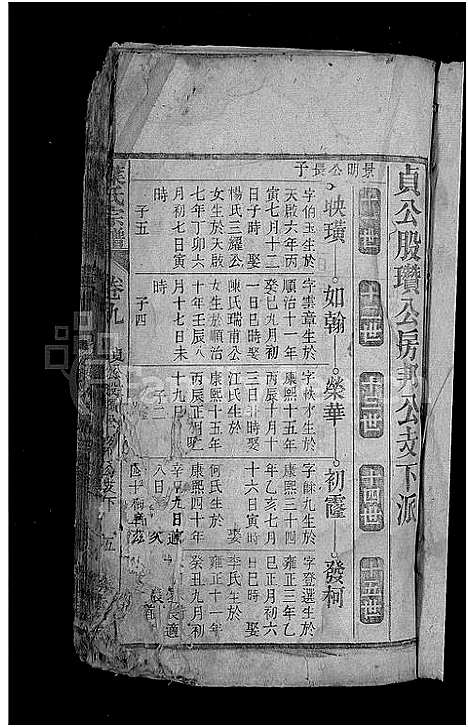 貞公股瓚公房邦公支下派
十二世
十四世
十五世
景明公長子
映璜
字伯玉生於
天啟六年丙
寅七月十二
日子時娶
楊氏三耀公
女生於天啟
七年丁卯六
月初七日寅
時
子五
如翰
字雲章生於
順治十一年
癸巳九月初
一日巳時娶
陳氏瑞甫公
女生於順治
十年壬辰八
月十七日未
時
子四
榮華
康熙十五年
丙辰十月十
江氏生於
康熙十五年
丙辰正月
十九日
子二
初霞
字穌九生於
康熙三十四
年乙亥七月
十六日寅時
娶
何氏生於
康熙四十年
八日
發柯
字登選生於
雍正三年乙
巳正月初六
日巳時娶
李氏生於
雍正十一年
癸丑九月初
氏宗譜
卷九